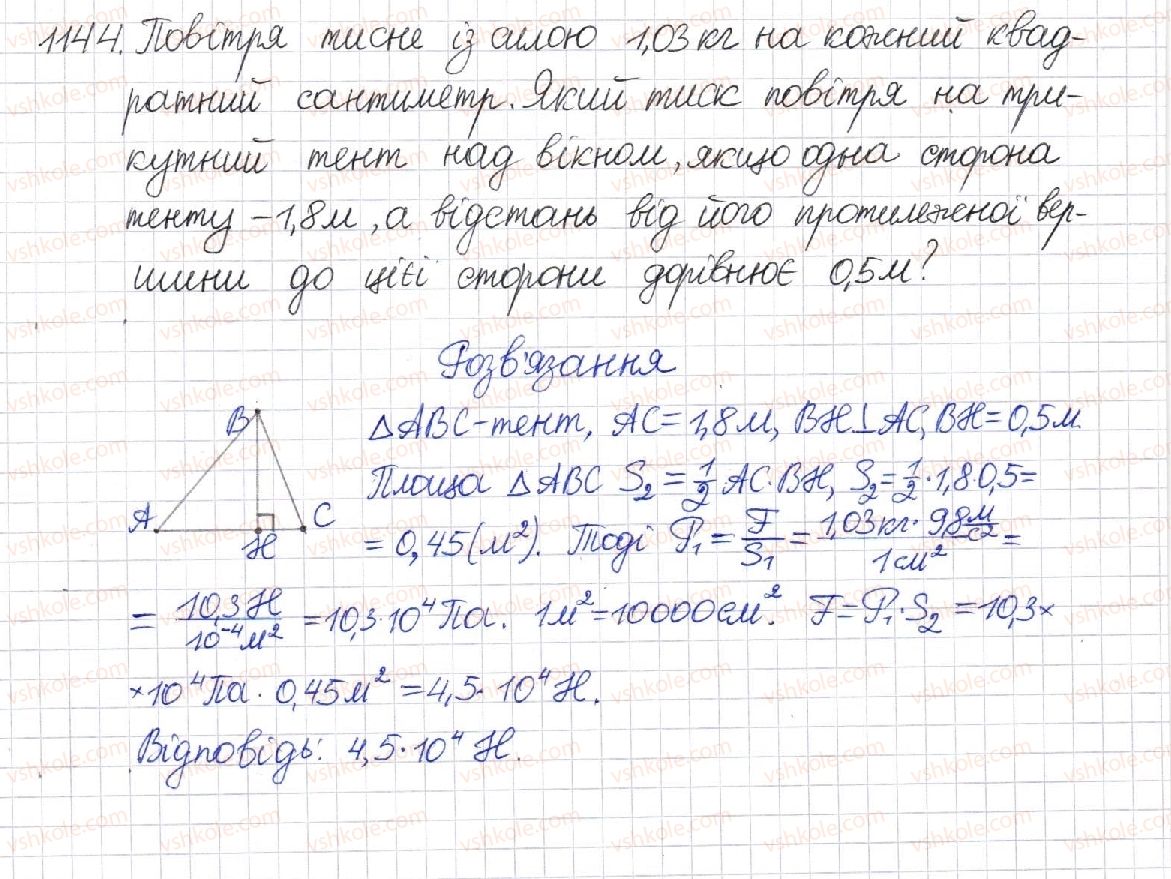 1144. Повітря тисне із силою 1,03 кг на кожний квад-
ратний сантиметр. Який тиск повітря на три-
кутний тент над вікном, якщо одна сторона
тенту – 1,8 м, а відстань від його протилежної вер-
шини до цієї сторони дорівнює 0,5 м?
Розв'язання
B
A
H
C
△ABC – тент, AC = 1,8 м, BH⊥AC, BH = 0,5 м.
Площа △ABC S₂ = 1/2 AC·BH, S₂ = 1/2 · 1,8·0,5 =
= 0,45 (м²). Тоді P₁ = F/S₁ = (1,03 кг · 9,8 м/с²)/(1 см²) =
= 10,3 H/(10⁻⁴ м²) = 10,3·10⁴ Па. 1 м² = 10000 см². F = P₁·S₂ = 10,3 ×
× 10⁴ Па · 0,45 м² = 4,5 · 10⁴ H.
Відповідь: 4,5·10⁴ H.
vshkole.com